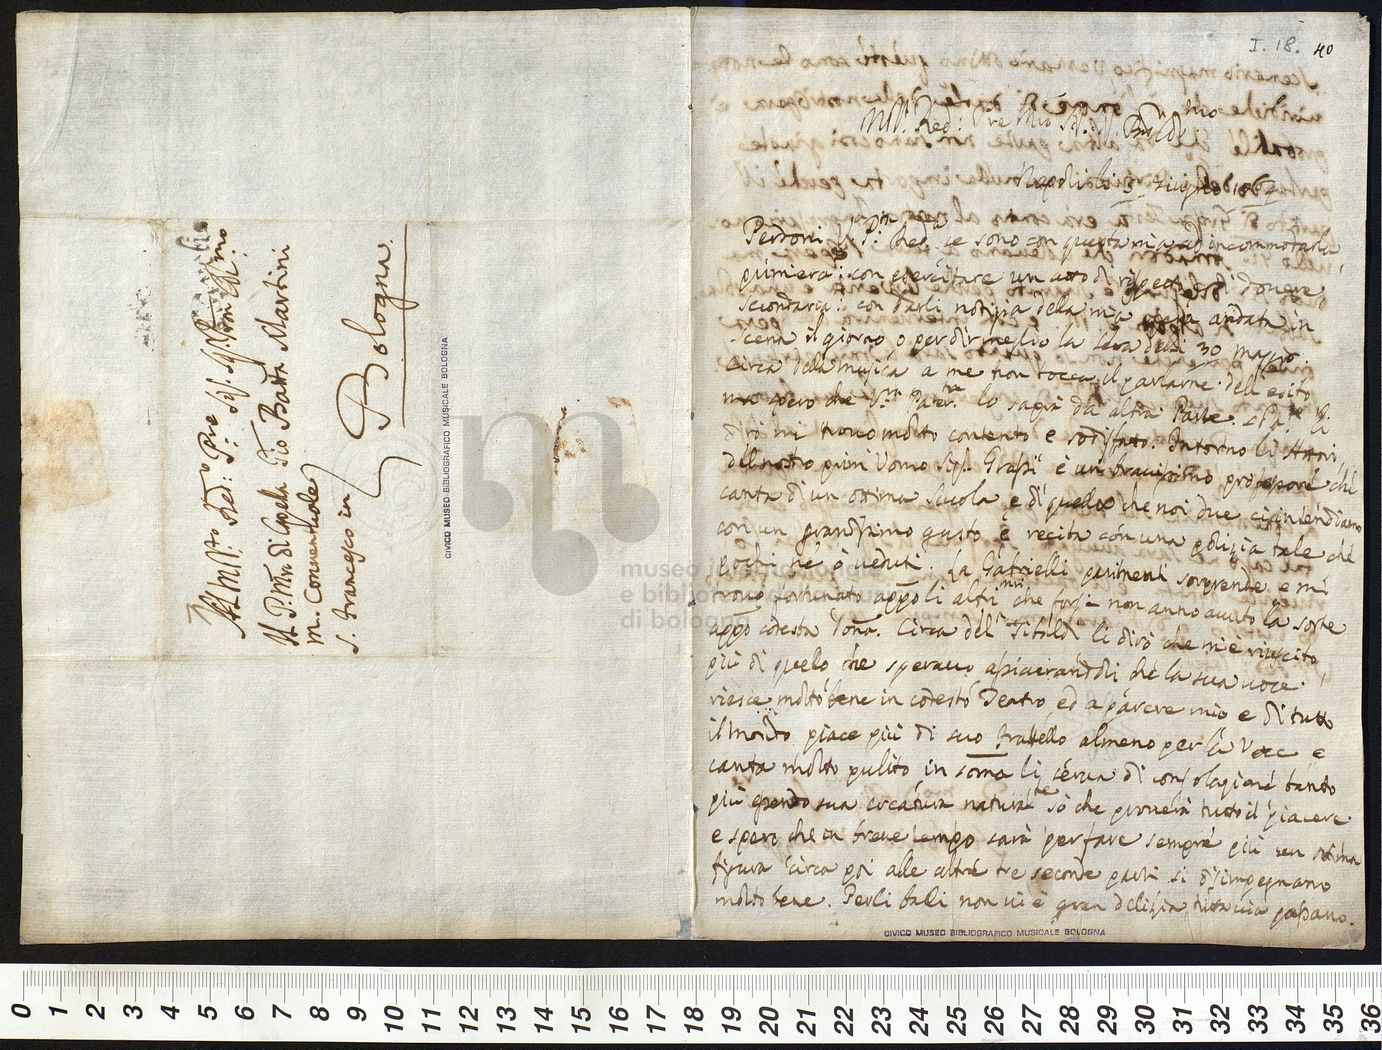 All Mol.to Red: P.re Sig. Sig. Pron Col.mo
Il P. Mro di Capella Gio Batta Martini
M. Conventuale
S. Francesco in
Bologna.
CIVICO MUSEO BIBLIOGRAFICO MUSICALE BOLOGNA
museo internazionale
e biblioteca della musica
di bologna
I. 18. 40
Mol. Red: P.re Mio Sig.
Napoli li 5
Perdoni P. Red. se sono con questa mia ad incommodarla
primiera: con esercitare un atto di rispetto e di dovere
secondaria: con darli notizia della mia opera andata in
scena il giorno o per dir meglio la sera delli 30 maggio.
Circa della musica a me non tocca il parlarne dell'esito
ma spero che V. Pater.tà lo saprà da altra Parte. li
dirò mi trovo molto contento e sodisfatto. Intorno li Attori
del nostro primo Uomo Sig. Grassi è un bravissimo professore che
canta di un ottima scuola e di quello che noi due ci intendiamo
con un grandissimo gusto e recita con una polizia tale che
pochi ne ò veduti. La Gabrielli parimenti sorprende e mi
trovo fortunato appo li altri che forse non anno avuto la sorte
appo codesta Donna. Circa del Tibaldi li dirò che mi è riuscito
più di quello che speravo assicurandoli che la sua voce
riesce molto bene in codesto Teatro ed a parere mio e di tutto
il mondo piace più di suo frattello almeno per la Voce e
canta molto pulito in soma li serva di consolazione tanto
più essendo sua creatura so che proverà tutto il piacere
e spero che in breve tempo sarà per fare sempre più un ottima
figura circa poi alle altre tre seconde parti si disimpegnano
molto bene. Per li balli non vi è gran delizia tutta via passano.
CIVICO MUSEO BIBLIOGRAFICO MUSICALE BOLOGNA
0 1 2 3 4 5 6 7 8 9 10 11 12 13 14 15 16 17 18 19 20 21 22 23 24 25 26 27 28 29 30 31 32 33 34 35 36